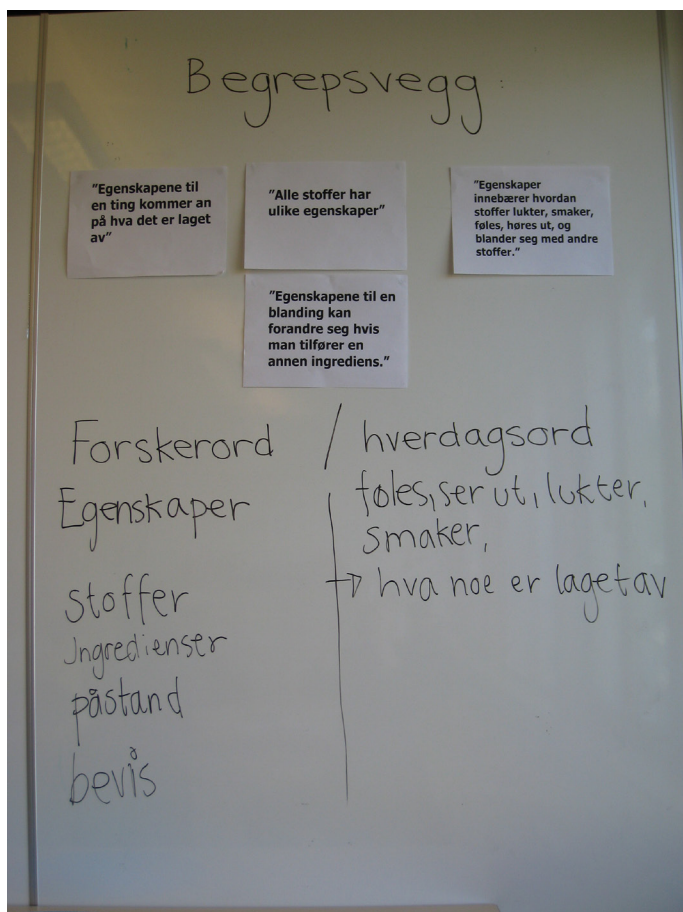 Begrepsvegg:
"Egenskapene til
en ting kommer an
på hva det er laget
av"
"Alle stoffer har
ulike egenskaper"
"Egenskaper
innebærer hvordan
stoffer lukter, smaker,
føles, høres ut, og
blander seg med andre
stoffer."
"Egenskapene til en
blanding kan
forandre seg hvis
man tilfører en
annen ingrediens."
Forskerord / hverdagsord
Egenskaper
føles, ser ut, lukter,
smaker,
stoffer → hva noe er laget av
Ingredienser
påstand
bevis